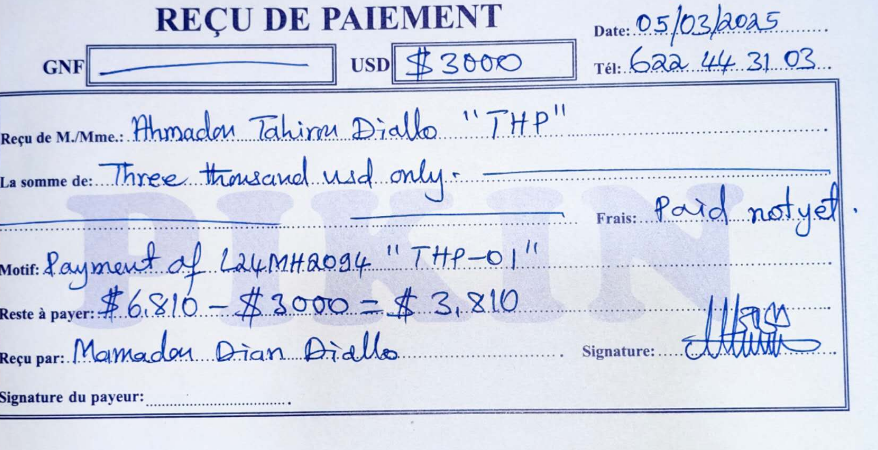 REÇU DE PAIEMENT
Date: 05/03/2025
GNF
USD $3000
Tél: 622 44 31 03
Reçu de M./Mme.: Ahmadou Tahirou Diallo "THP"
La somme de: Three thousand usd only.
Frais: Paid not yet.
PIKIN
Motif: Payment of L24MH2094 "THP-01"
Reste à payer: $6,810 - $3000 = $3,810
Reçu par: Mamadou Dian Diallo
Signature:
Signature du payeur: